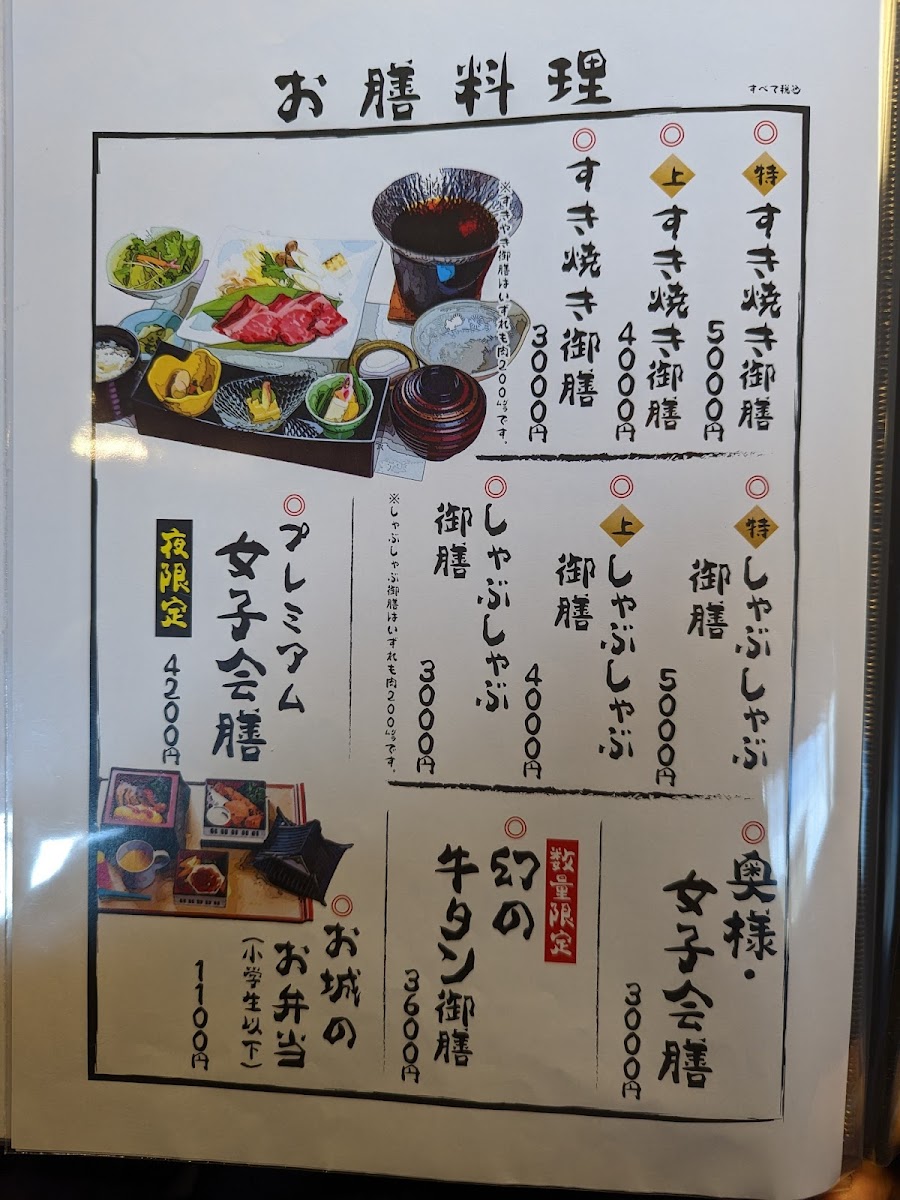 お膳料理
すべて税込
◎特すき焼き御膳
5000円
◎上すき焼き御膳
4000円
◎すき焼き御膳
3000円
※すきやき御膳はいずれも肉200㌘です。
◎特しゃぶしゃぶ
御膳
5000円
◎上しゃぶしゃぶ
御膳
4000円
◎しゃぶしゃぶ
御膳
3000円
※しゃぶしゃぶ御膳はいずれも肉200㌘です。
◎プレミアム
女子会膳
夜限定
4200円
◎奥様・
女子会膳
3000円
数量限定
◎幻の
牛タン御膳
3600円
◎お城の
お弁当
(小学生以下)
1100円